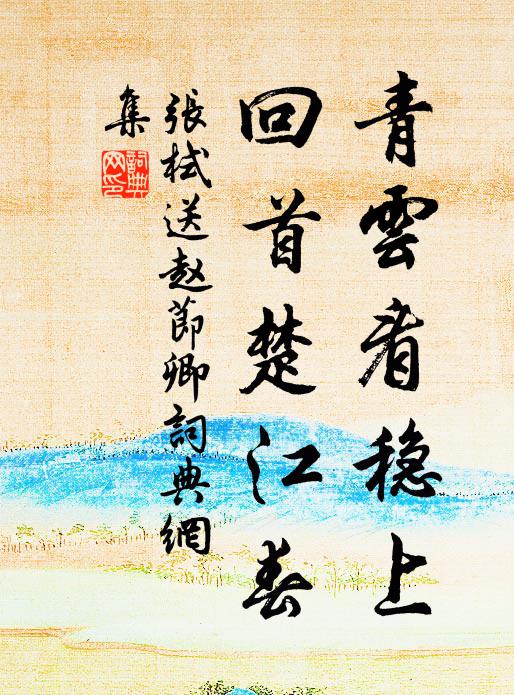 青雲看穏上
回首楚江春
張栻送赵節卿詞典網
集
詞典網印